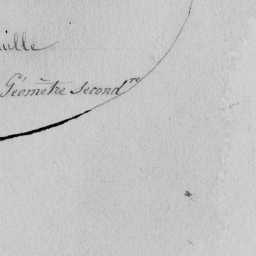 Géomètre second.re